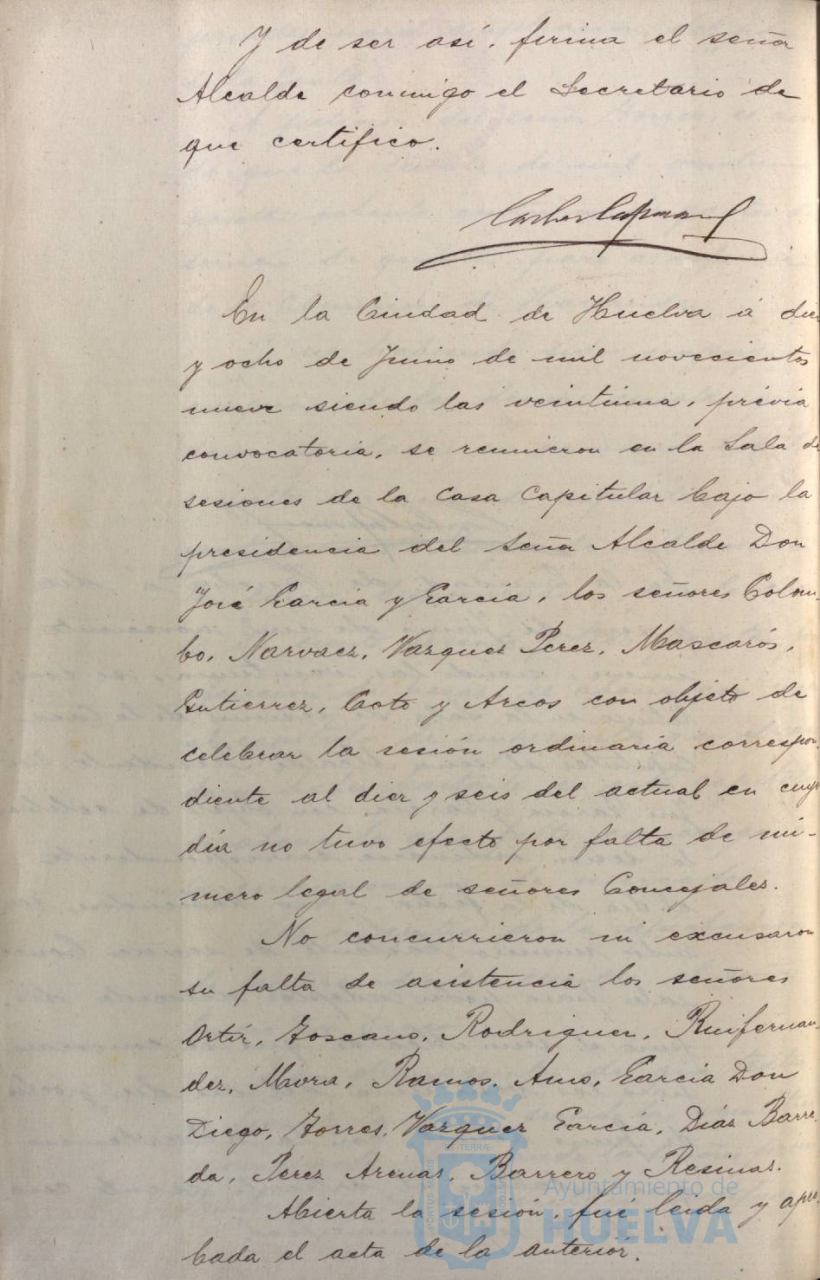 Y de ser así, firma el señor
Alcalde conmigo el Secretario de
que certifico.
En la Ciudad de Huelva á diez
y ocho de Junio de mil novecientos
nueve siendo las veintiuna, prévia
convocatoria, se reunieron en la Sala de
sesiones de la Casa Capitular bajo la
presidencia del Señor Alcalde Don
José Garcia y Garcia, los señores Colom-
bo, Narvaez, Vazquez Perez, Mascarós,
Gutierrez, Coto y Arcos con objeto de
celebrar la sesión ordinaria correspon-
diente al diez y seis del actual en cuyo
día no tuvo efecto por falta de nú-
mero legal de señores Concejales.
No concurrieron ni excusaron
su falta de asistencia los señores
Ortiz, Toscano, Rodriguez, Ruifernan-
dez, Mora, Ramos, Amo, Garcia Don
Diego, Torres, Vazquez García, Diáz Barre-
da, Perez Arenas, Barrero y Resinas.
Abierta la sesión, fué leida y apro-
bada el acta de la anterior.
Ayuntamiento de
HUELVA